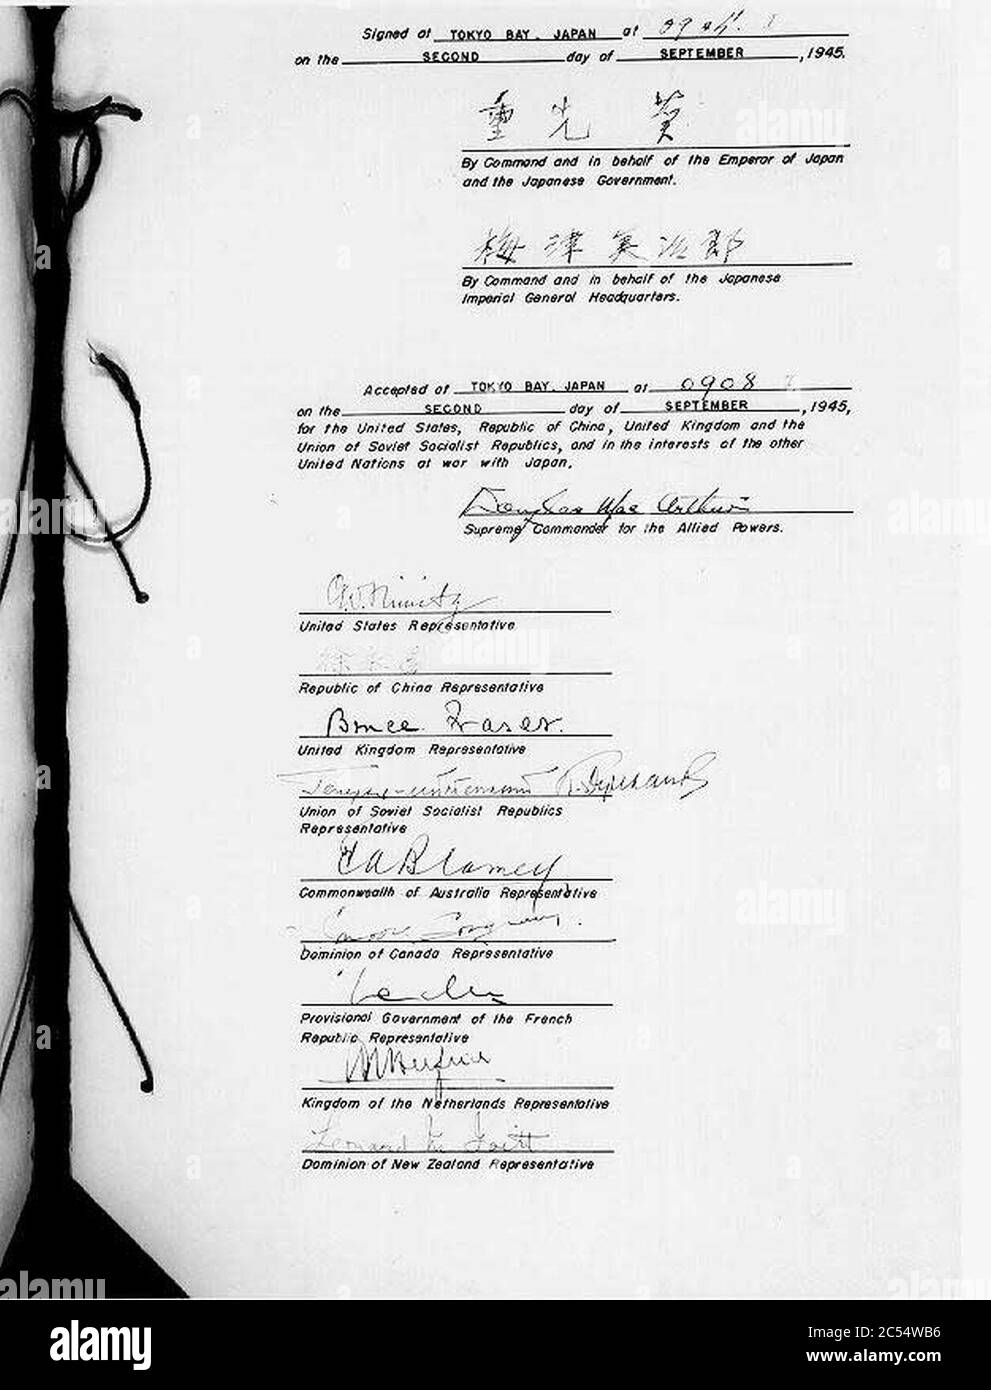 Signed at TOKYO BAY, JAPAN at 0904 I
on the SECOND day of SEPTEMBER, 1945.
重光 葵
By Command and in behalf of the Emperor of Japan
and the Japanese Government.
梅津美治郎
By Command and in behalf of the Japanese
Imperial General Headquarters.
Accepted at TOKYO BAY, JAPAN at 0908 I
on the SECOND day of SEPTEMBER, 1945,
for the United States, Republic of China, United Kingdom and the
Union of Soviet Socialist Republics, and in the interests of the other
United Nations at war with Japan.
Douglas MacArthur
Supreme Commander for the Allied Powers.
C.W. Nimitz
United States Representative
徐永昌
Republic of China Representative
Bruce Fraser.
United Kingdom Representative
Union of Soviet Socialist Republics
Representative
T A Blamey
Commonwealth of Australia Representative
Dominion of Canada Representative
Leclerc
Provisional Government of the French
Republic Representative
Kingdom of the Netherlands Representative
Leonard M Isitt
Dominion of New Zealand Representative
alamy
alamy
alamy
alamy
alamy
alamy
alamy
alamy
Image ID: 2C54WB6
www.alamy.com